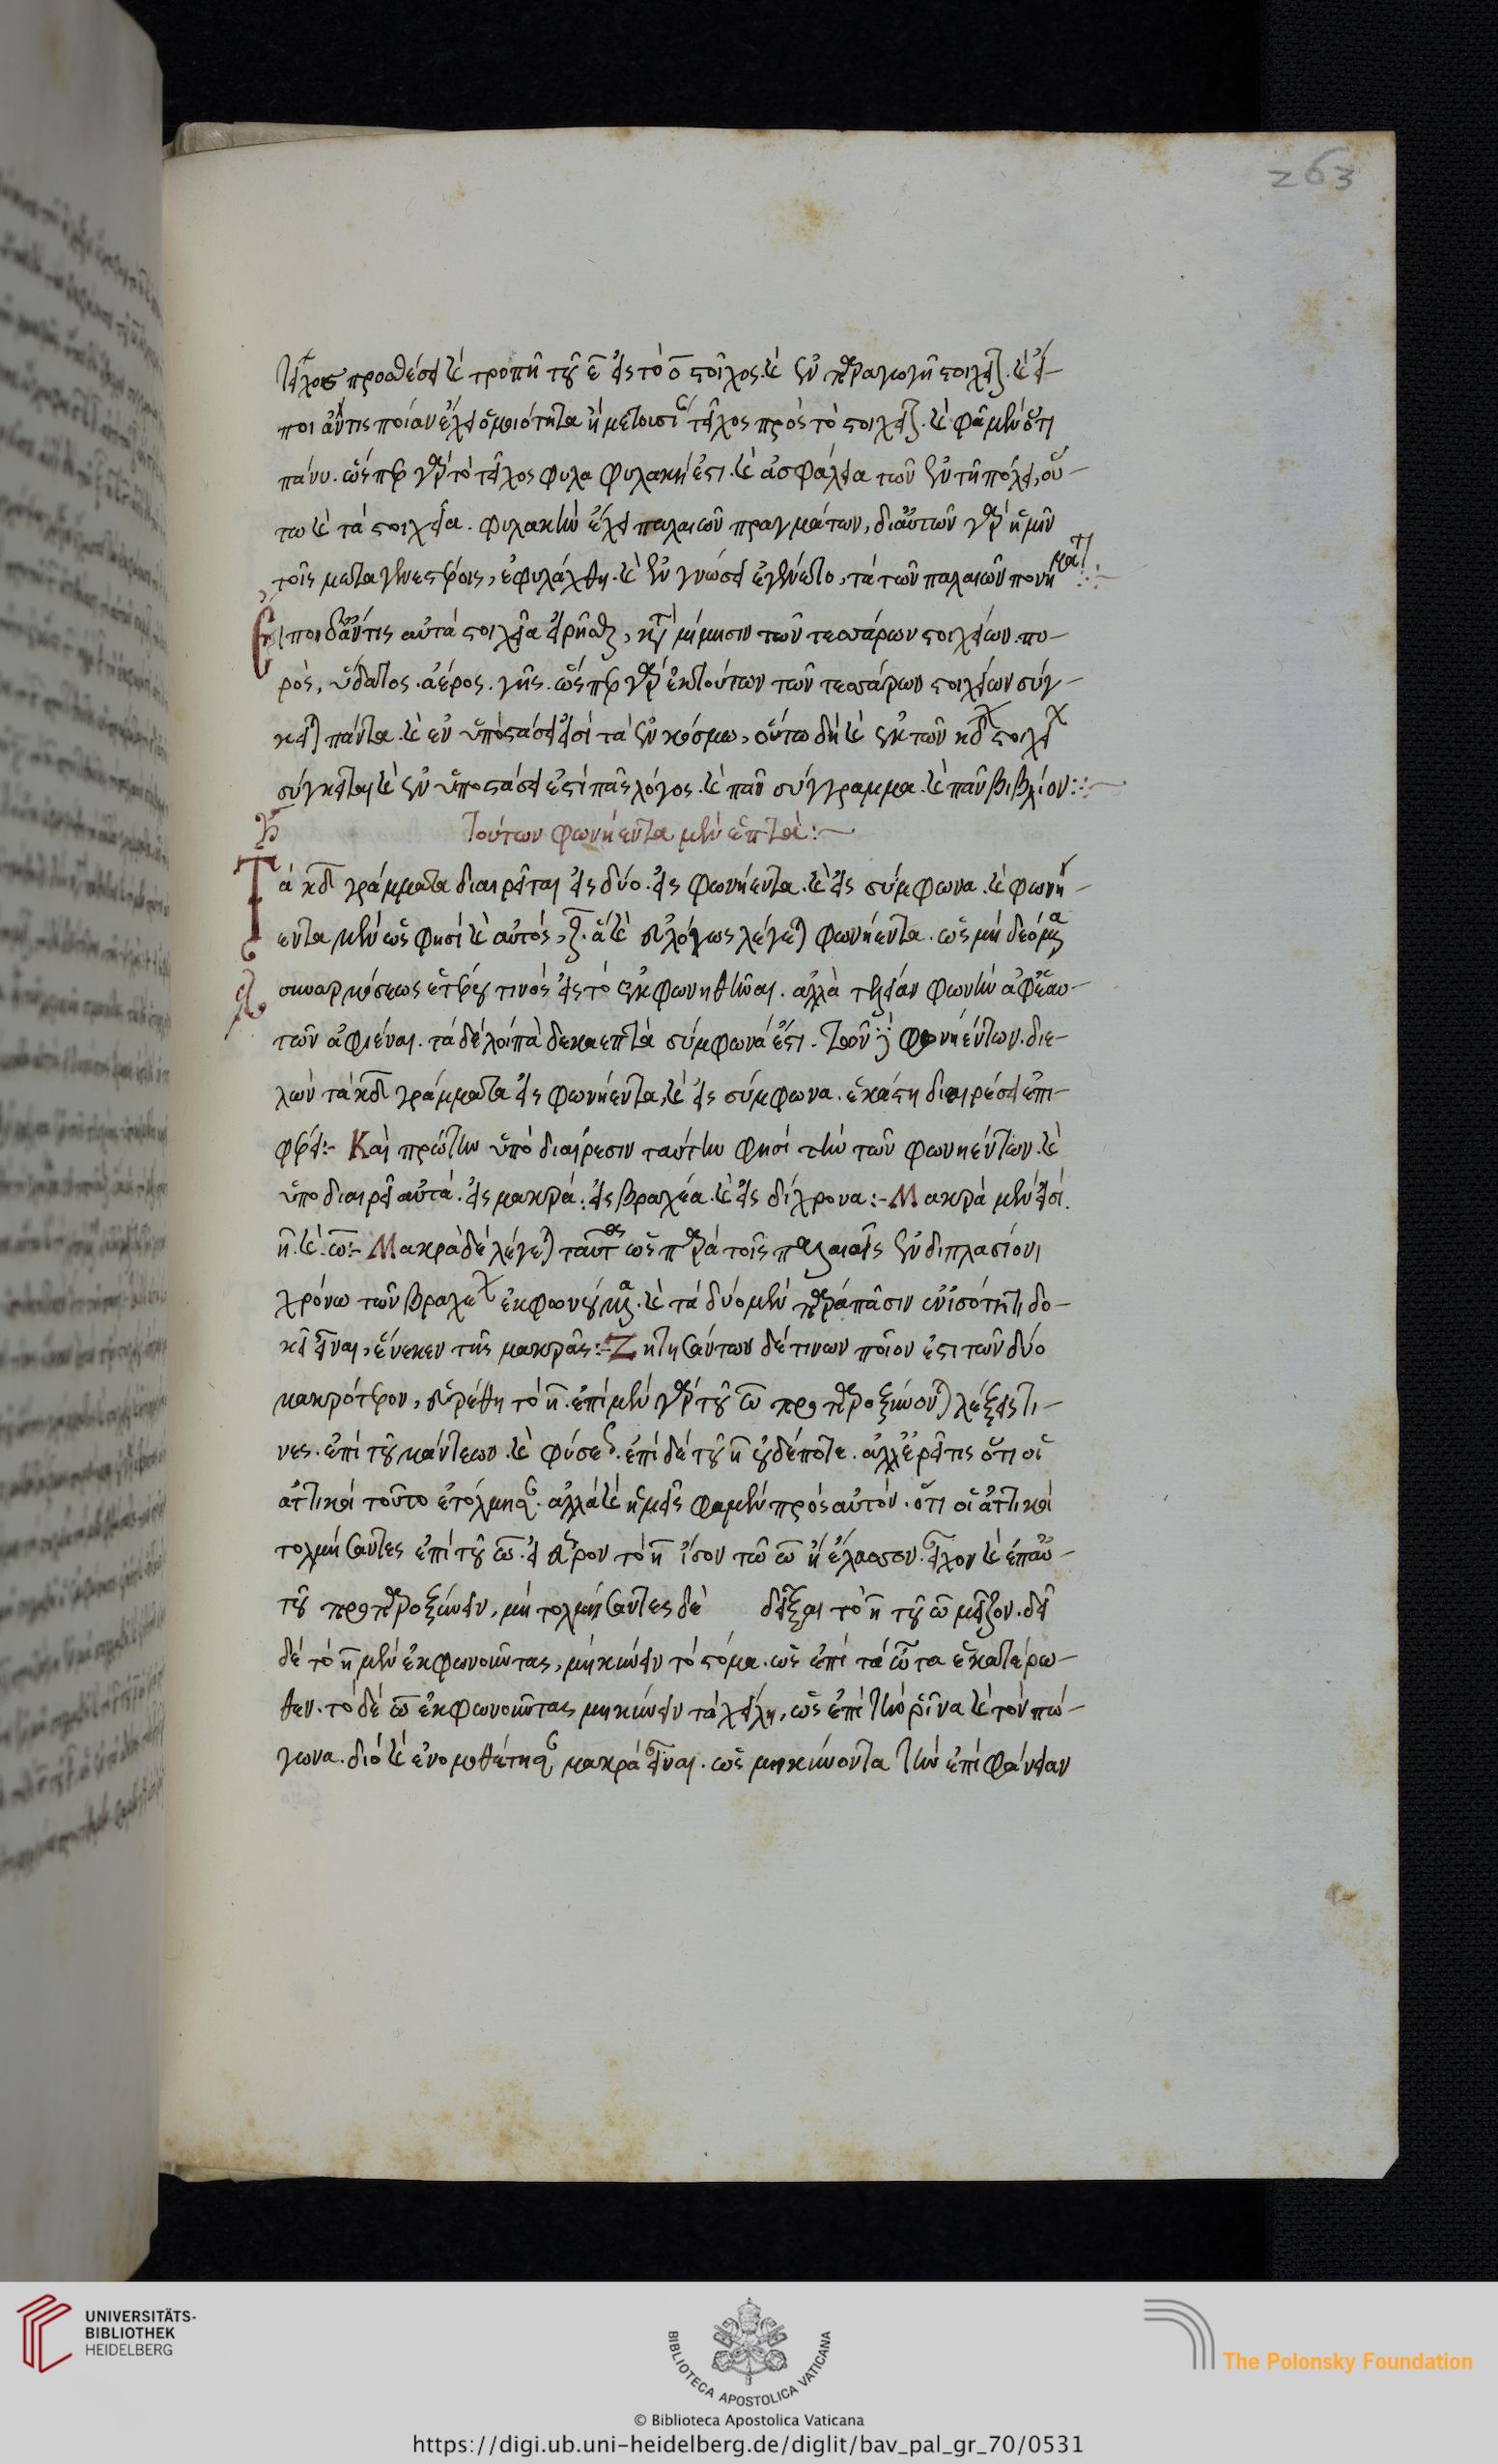 263
τεῖχος προσθέσει καὶ τροπῇ τοῦ ε̄ εἰς τὸ ο̄ στοῖχος. καὶ ἐν παραγωγῇ στοιχεῖον. καὶ εἴ-
ποι ἄν τις ποίαν ἔχει ὁμοιότητα ἢ μετουσίαν τεῖχος πρὸς τὸ στοιχεῖον. καὶ φαμὲν ὅτι
πάνυ. ὥσπερ γὰρ τὸ τεῖχος φυλα φυλακή ἐστι. καὶ ἀσφάλεια τῶν ἐν τῇ πόλει, οὕ-
τω καὶ τὰ στοιχεῖα. φυλακὴν ἔχει παλαιῶν πραγμάτων, δι' αὐτῶν γὰρ ἡμῖν
τοῖς μεταγενεστέροις, ἐφυλάχθη. καὶ ἐν γνώσει ἐγένετο, τὰ τῶν παλαιῶν πονήματα:
Εἴποι δ' ἄν τις αὐτὰ στοιχεῖα εἰρῆσθαι, κατὰ μίμησιν τῶν τεσσάρων στοιχείων. πυ-
ρὸς, ὕδατος. ἀέρος. γῆς. ὥσπερ γὰρ ἐκ τούτων τῶν τεσσάρων στοιχείων σύγ-
κειται πάντα. καὶ ἐν ὑποστάσει εἰσὶ τὰ ἐν κόσμω, οὕτω δὴ καὶ ἐκ τῶν κδ στοιχείων
σύγκειται καὶ ἐν ὑποστάσει ἐστὶ πᾶς λόγος. καὶ πᾶν σύγγραμμα. καὶ πᾶν βιβλίον:
Τούτων φωνήεντα μὲν ἑπτά:
Τὰ κδ γράμματα διαιρεῖται εἰς δύο. εἰς φωνήεντα. καὶ εἰς σύμφωνα. καὶ φωνή-
εντα μὲν ὥς φησὶ καὶ αὐτός, ζ. ἃ καὶ εὐλόγως λέγεται φωνήεντα. ὡς μὴ δεόμενα
συναρμόσεως ἑτέρου τινὸς εἰς τὸ ἐκφωνηθῆναι. ἀλλὰ τελείαν φωνὴν ἀφ' ἑαυ-
τῶν ἀφιέναι. τὰ δὲ λοιπὰ δεκαεπτὰ σύμφωνά ἐστι. φωνηέντων. διε-
λὼν τὰ κδ γράμματα εἰς φωνήεντα, καὶ εἰς σύμφωνα. ἑκάστη διαιρέσει ἐπι-
φέρει:- Καὶ πρώτην ὑπὸ διαίρεσιν ταύτην φησὶ τὴν τῶν φωνηέντων. καὶ
ὑποδιαιρεῖ αὐτά. εἰς μακρά. εἰς βραχέα. καὶ εἰς δίχρονα:- Μακρὰ μὲν εἰσί.
η̄. καὶ ω̄:- Μακρὰ δὲ λέγεται ταῦτα ὡς παρὰ τοῖς παλαιοῖς ἐν διπλασίονι
χρόνω τῶν βραχέων ἐκφωνούμενα. καὶ τὰ δύο μὲν παρὰ πᾶσιν ἐν ἰσότητι δο-
κεῖ εἶναι, ἕνεκεν τῆς μακρᾶς:- Ζητησάντων δέ τινων ποῖον ἐστι τῶν δύο
μακρότερον, εὑρέθη τὸ η̄. ἐπὶ μὲν γὰρ τοῦ ω̄ προπαροξύνονται λέξεις τι-
νες. ἐπὶ τοῦ μάντεων. καὶ φύσεων. ἐπὶ δὲ τοῦ η̄ οὐδέποτε. ἀλλ' ἐρεῖ τις ὅτι οἱ
ἀττικοὶ τοῦτο ἐτόλμησαν. ἀλλὰ καὶ ἡμεῖς φαμὲν πρὸς αὐτόν. ὅτι οἱ ἀττικοὶ
τολμήσαντες ἐπὶ τοῦ ω̄. εἰ εὗρον τὸ η̄ ἴσον τῶ ω̄ ἢ ἔλασσον. εἶχον καὶ ἐπ' αὐ-
τοῦ προπαροξύνειν, μὴ τολμήσαντες δὲ δεῖξαι τὸ η̄ τοῦ ω̄ μεῖζον. δεῖ
δὲ τὸ η̄ μὲν ἐκφωνοῦντας, μηκύνειν τὸ στόμα. ὡς ἐπὶ τὰ ὦτα ἑκατέρω-
θεν. τὸ δὲ ω̄ ἐκφωνοῦντας μηκύνειν τὰ χείλη, ὡς ἐπὶ τὴν ῥῖνα καὶ τὸν πώ-
γωνα. διὸ καὶ ἐνομοθέτησαν μακρὰ εἶναι. ὡς μηκύνοντα τὴν ἐπιφάνειαν
UNIVERSITÄTS-
BIBLIOTHEK
HEIDELBERG
BIBLIOTECA APOSTOLICA VATICANA
The Polonsky Foundation
© Biblioteca Apostolica Vaticana
https://digi.ub.uni-heidelberg.de/diglit/bav_pal_gr_70/0531